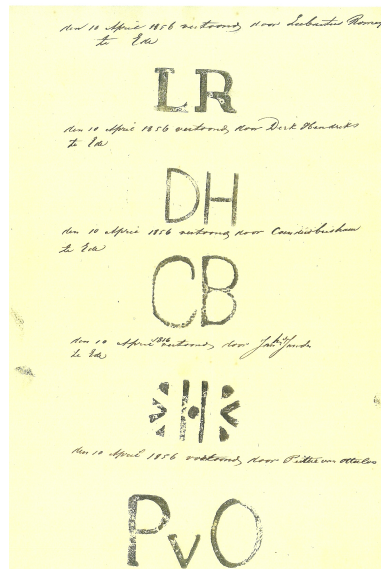 den 10 April 1856 vertoond door Lubartus
te Ede
LR
den 10 April 1856 vertoond door Derk Hendriks
te Ede
DH
den 10 April 1856 vertoond door
te Ede
CB
den 10 April 1856 vertoond door
te Ede
H
den 10 April 1856 vertoond door Peter van Otterloo
PvO